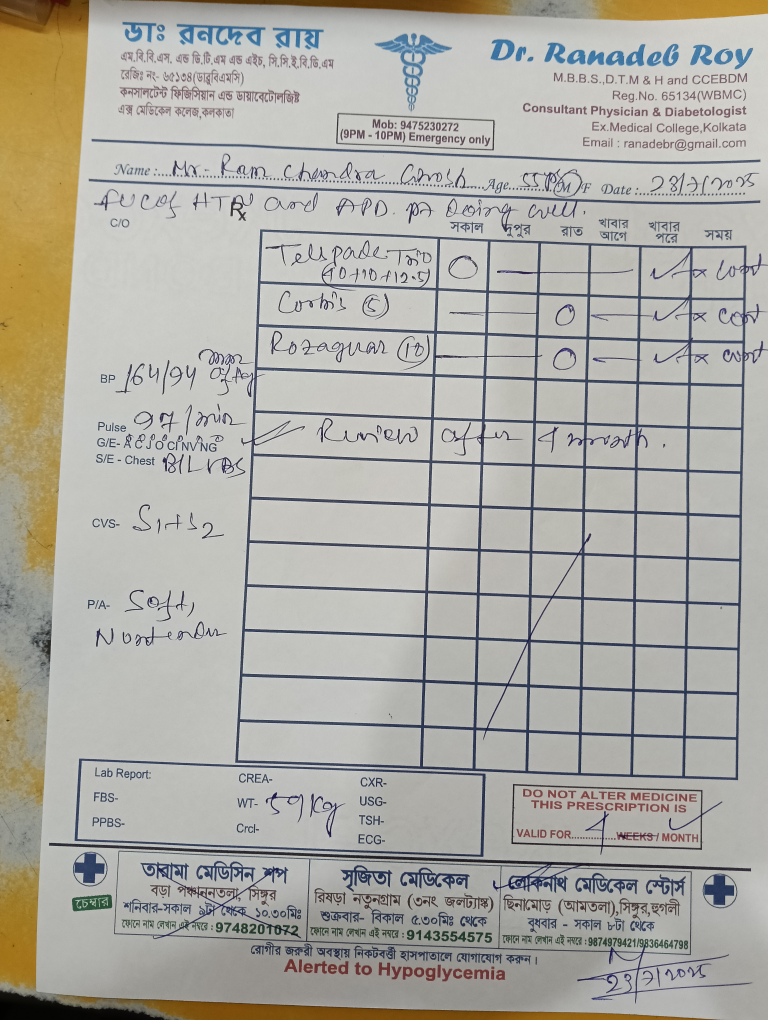 ডাঃ রনদেব রায়
এম.বি.বি.এস. এন্ড ডি.টি.এম এন্ড এইচ, সি.সি.ই.বি.ডি.এম
রেজিঃ নং- ৬৫১৩৪(ডাব্লুবিএমসি)
কনসালটেন্ট ফিজিসিয়ান এন্ড ডায়াবেটোলজিষ্ট
এক্স মেডিকেল কলেজ,কলকাতা
Mob: 9475230272
(9PM - 10PM) Emergency only
Dr. Ranadeb Roy
M.B.B.S.,D.T.M & H and CCEBDM
Reg.No. 65134(WBMC)
Consultant Physician & Diabetologist
Ex.Medical College,Kolkata
Email : ranadebr@gmail.com
Name : Mr- Ram Chandra Ghosh Age 55 M / F Date : 23/7/2025
HTN and APD. pt doing well.
C/O
Rx
সকাল দুপুর রাত খাবার আগে খাবার পরে সময়
Telspade Trio
(40+10+12.5) O cont
Corbis (5) O cont
Rozaguar (10) O cont
BP 164/94
Pulse 97/min
Review after 1 month.
G/E- A C J O Cl NV NG
S/E - Chest B/L VBS
CVS- S1+S2
P/A- Soft,
Nontender
Lab Report: CREA- CXR-
FBS- WT- 59 Kg USG-
PPBS- Crcl- TSH-
ECG-
DO NOT ALTER MEDICINE
THIS PRESCRIPTION IS
VALID FOR 1 WEEKS / MONTH
চেম্বার
তারামা মেডিসিন শপ
বড়া পঞ্চাননতলা, সিঙ্গুর
শনিবার-সকাল ৯টা থেকে ১০.৩০মিঃ
ফোনে নাম লেখান এই নম্বরে : 9748201072
সৃজিতা মেডিকেল
রিষড়া নতুনগ্রাম (৩নং জলট্যাঙ্ক)
শুক্রবার- বিকাল ৫.৩০মিঃ থেকে
ফোনে নাম লেখান এই নম্বরে : 9143554575
লোকনাথ মেডিকেল স্টোর্স
ছিনামোড় (আমতলা),সিঙ্গুর,হুগলী
বুধবার - সকাল ৮টা থেকে
ফোনে নাম লেখান এই নম্বরে : 9874979421/9836464798
রোগীর জরুরী অবস্থায় নিকটবর্ত্তী হাসপাতালে যোগাযোগ করুন।
Alerted to Hypoglycemia
23/7/2025